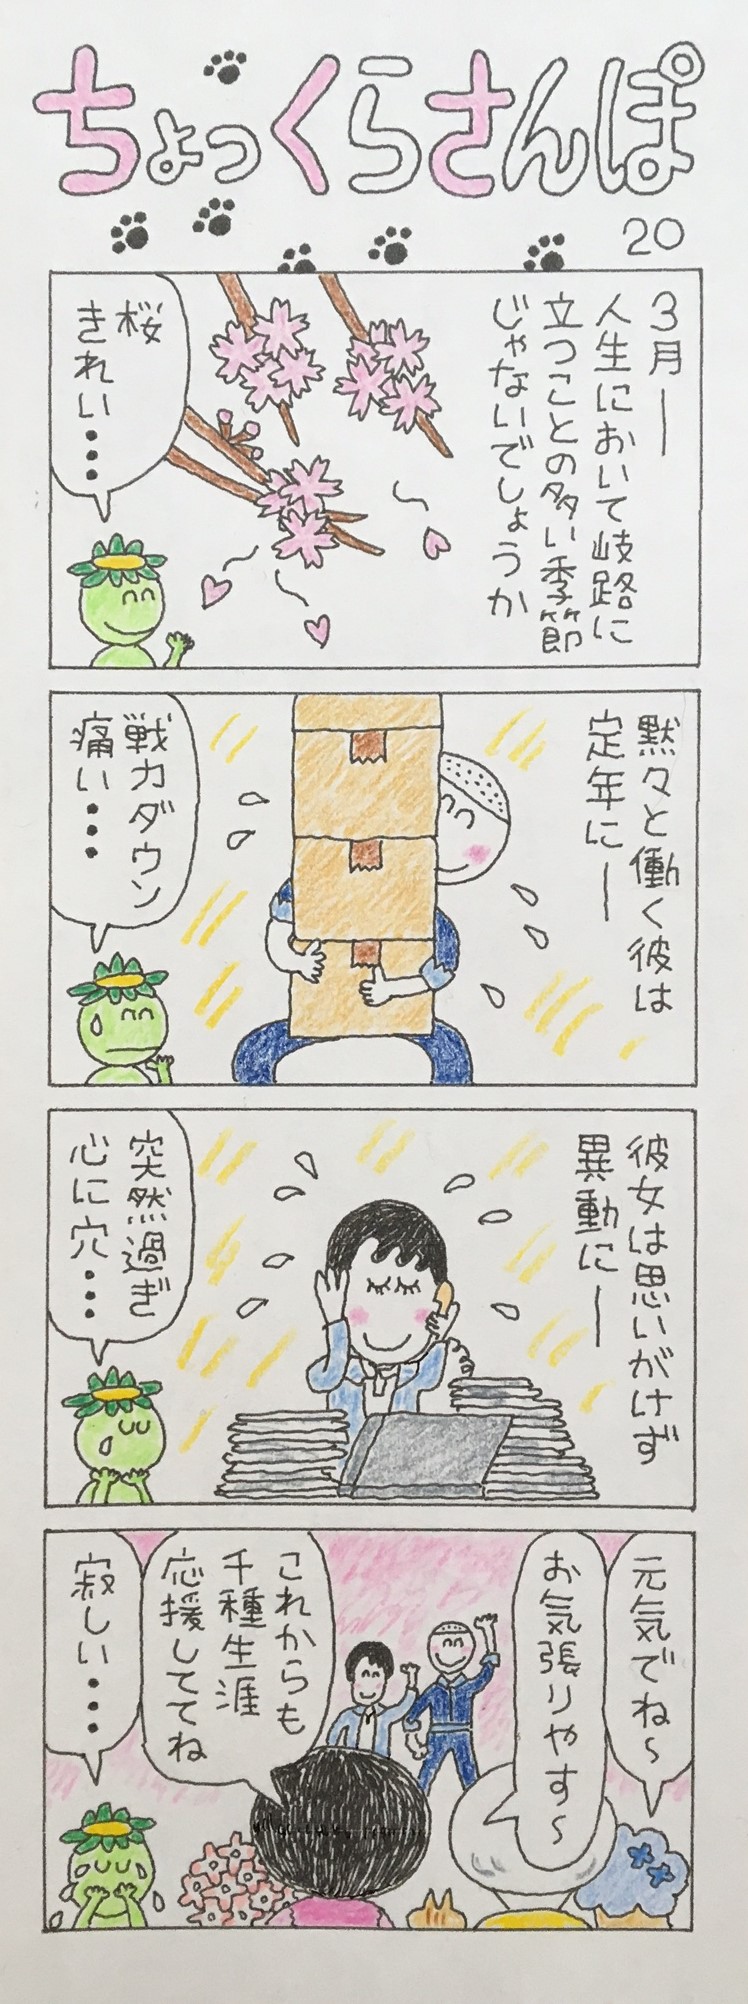 ちょっくらさんぽ
20
3月――
人生において岐路に
立つことの多い季節
じゃないでしょうか
桜
きれい・・・・
黙々と働く彼は
定年に――
戦力ダウン
痛い・・・
彼女は思いがけず
異動に――
突然過ぎ
心に穴・・・
元気でね〜
お気張りやす〜
これからも
千種生涯
応援しててね
寂しい・・・・